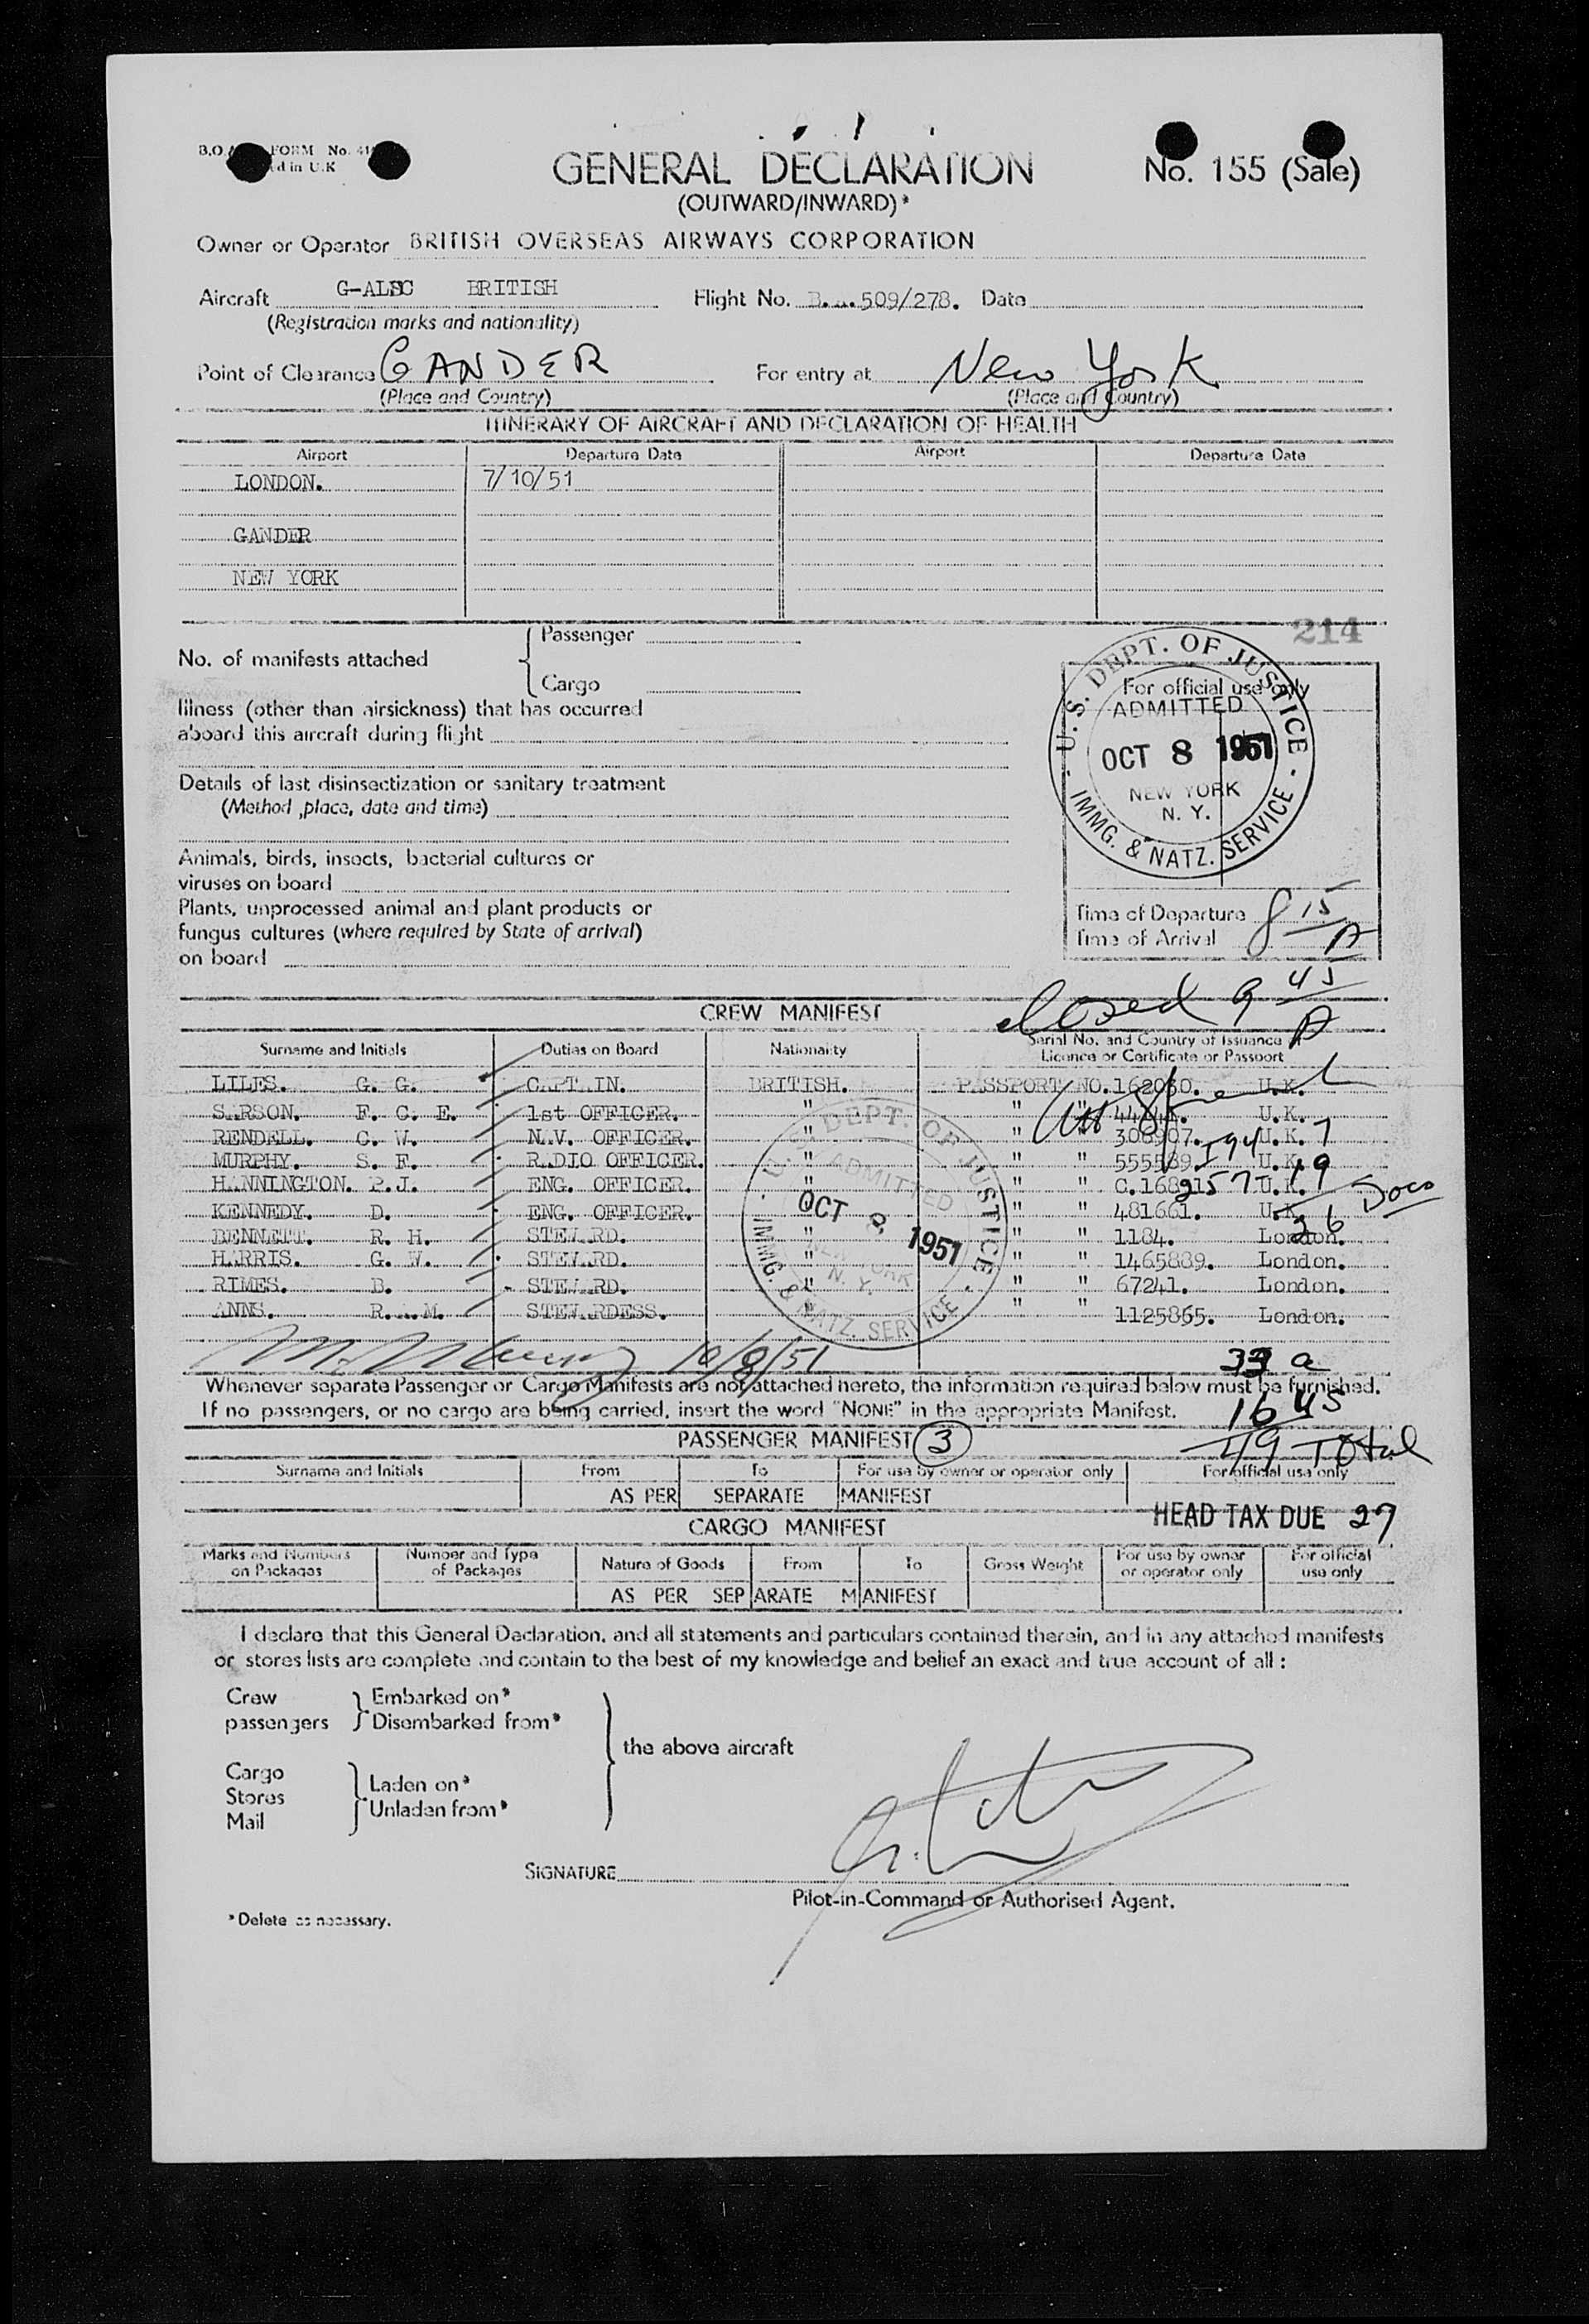 FORM No.
d in U.K
GENERAL DECLARATION
No. 155 (Sale)
(OUTWARD/INWARD)*
Owner or Operator BRITISH OVERSEAS AIRWAYS CORPORATION
Aircraft G-ALSC BRITISH Flight No. 509/278. Date
(Registration marks and nationality)
Point of Clearance GANDER For entry at New York
(Place and Country) (Place and Country)
ITINERARY OF AIRCRAFT AND DECLARATION OF HEALTH
Airport Departure Date Airport Departure Date
LONDON. 7/10/51
GANDER
NEW YORK
214
No. of manifests attached { Passenger
Cargo
Illness (other than airsickness) that has occurred
aboard this aircraft during flight
Details of last disinsectization or sanitary treatment
(Method ,place, date and time)
Animals, birds, insects, bacterial cultures or
viruses on board
Plants, unprocessed animal and plant products or
fungus cultures (where required by State of arrival)
on board
For official use only
U.S. DEPT. OF JUSTICE
ADMITTED
OCT 8 1951
NEW YORK
N. Y.
IMMG. & NATZ. SERVICE
Time of Departure 8 15
Time of Arrival A
closed 9 45 A
CREW MANIFEST
Surname and Initials Duties on Board Nationality Serial No. and Country of Issuance of
Licence or Certificate or Passport
LILES. G. G. CAPTAIN. BRITISH. PASSPORT NO. 162030. U.K.
SARSON. F. C. E. 1st OFFICER. " " " U.K.
RENDELL. C. W. NAV. OFFICER. " " " 308907. U.K.
MURPHY. S. F. RADIO OFFICER. " " " 555589. U.K.
HANNINGTON. P.J. ENG. OFFICER. " " " U.K.
KENNEDY. D. ENG. OFFICER. " " " 481661. U.K.
BENNETT. R. H. STEWARD. " " " 1184. London.
HARRIS. G. W. STEWARD. " " " 1465889. London.
RIMES. B. STEWARD. " " " 67241. London.
ANNS. R.A.M. STEWARDESS. " " " 1125865. London.
I94 7
257 19 Docs
26
U.S. DEPT. OF JUSTICE
ADMITTED
OCT 8, 1951
NEW YORK
N. Y.
IMMG. & NATZ. SERVICE
10/8/51
33 a
Whenever separate Passenger or Cargo Manifests are not attached hereto, the information required below must be furnished.
If no passengers, or no cargo are being carried, insert the word "NONE" in the appropriate Manifest.
16 US
49 Total
PASSENGER MANIFEST 3
Surname and Initials From To For use by owner or operator only For official use only
AS PER SEPARATE MANIFEST
HEAD TAX DUE 27
CARGO MANIFEST
Marks and Numbers on Packages Number and Type of Packages Nature of Goods From To Gross Weight For use by owner or operator only For official use only
AS PER SEPARATE MANIFEST
I declare that this General Declaration, and all statements and particulars contained therein, and in any attached manifests
or stores lists are complete and contain to the best of my knowledge and belief an exact and true account of all :
Crew Embarked on*
passengers Disembarked from*
the above aircraft
Cargo
Stores Laden on*
Mail Unladen from*
SIGNATURE
Pilot-in-Command or Authorised Agent.
*Delete as necessary.